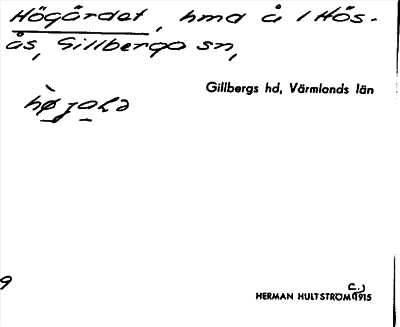 Högärdet, hmd å 1 Hös-
ås, Gillberga sn,
Gillbergs hd, Värmlands län
9
C.)
HERMAN HULTSTRÖM 1915